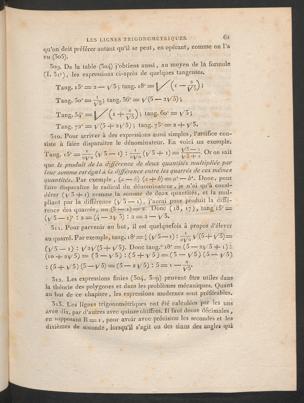 LES LIGNES TRIGONOMÉTRIQUES. 61
qu'on doit préférer autant qu'il se peut, en opérant, comme on l'a
vu (305).
309. De la table (304) j'obtiens aussi, au moyen de la formule
(I, 31°), les expressions ci-après de quelques tangentes.
Tang. 15° = 2 — √3; tang. 18° = √(1 — 2/√5);
Tang. 30° = 1/√3; tang. 36° = √(5 — 2√5);
Tang. 54° = √(1 + 2/√5); tang. 60° = √3;
Tang. 72° = √(5 + 2√5); tang. 75° = 2 + √3.
310. Pour arriver à des expressions aussi simples, l'artifice con-
siste à faire disparaître le dénominateur. En voici un exemple.
Or on sait
que le produit de la différence de deux quantités multipliée par
leur somme est égal à la différence entre les quarrés de ces mêmes
quantités. Par exemple, (a — b) (a + b) = a² — b². Donc, pour
faire disparaître le radical du dénominateur, je n'ai qu'à consi-
dérer (√3 + 1) comme la somme de deux quantités, et la mul-
pliant par la différence (√3 — 1), j'aurai pour produit la diffé-
rence des quarrés, = (3 — 1) = 2. Donc (18, 17), tang. 15° =
(√3 — 1)² : 2 = (4 — 2√3) : 2 = 2 — √3.
311. Pour parvenir au but, il est quelquefois à propos d'élever
au quarré. Par exemple, tang. 18° =
(√5 — 1) : √2√(5 + √5). Donc tang.² 18° = (5 — 2√5 + 1) :
(10 + 2√5) = (3 — √5) : (5 + √5) = (3 — √5) (5 — √5)
: (5 + √5) (5 — √5) = (5 — 2√5) : 5 = 1 — 2/√5.
312. Les expressions finies (304, 309) peuvent être utiles dans
la théorie des polygones et dans les problèmes mécaniques. Quant
au but de ce chapitre, les expressions suivantes sont préférables.
313. Les lignes trigonométriques ont été calculées par les uns
avec dix, par d'autres avec quinze chiffres. Il faut douze décimales,
en supposant R = 1, pour avoir avec précision les secondes et les
dixièmes de seconde, lorsqu'il s'agit ou des sinus des angles qui